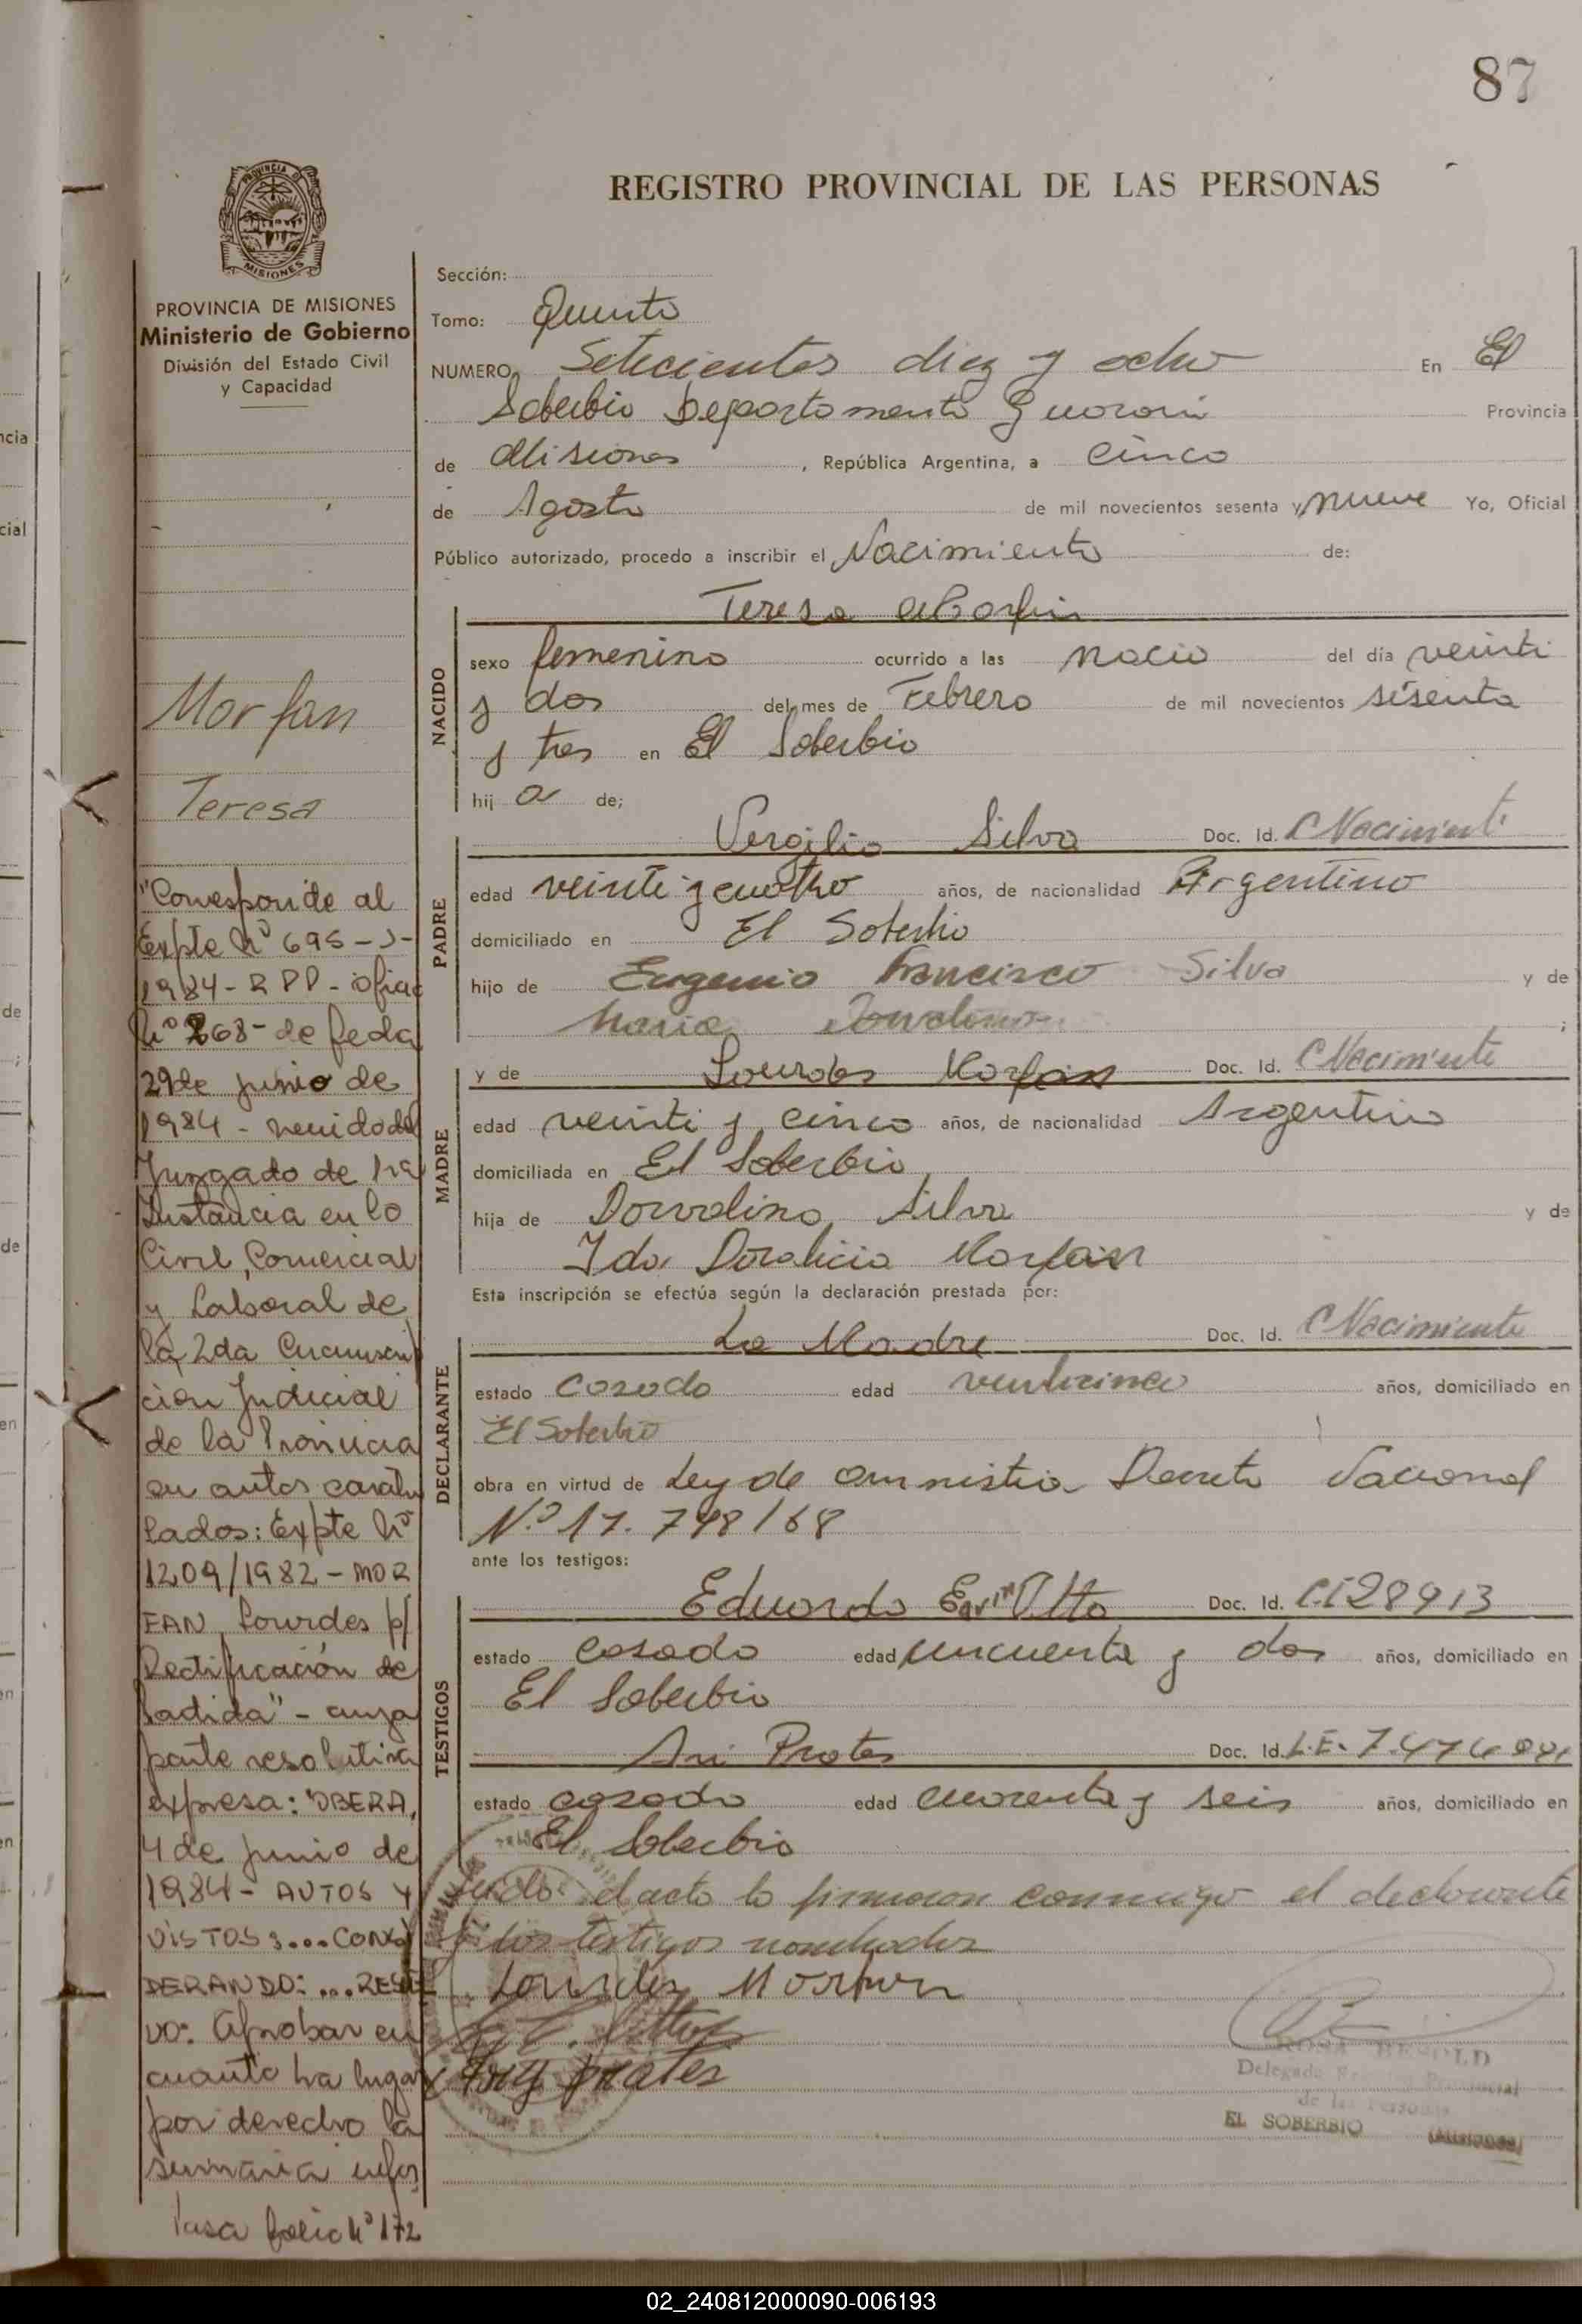 87
REGISTRO PROVINCIAL DE LAS PERSONAS
PROVINCIA DE MISIONES
Ministerio de Gobierno
División del Estado Civil
y Capacidad
Morfan
Teresa
"Corresponde al
Expte Nº 695-J-
1984- RPP- ofic
Nº 268- de fecha
29 de junio de
1984- venido del
Juzgado de 1ra
Instancia en lo
Civil, Comercial
y Laboral de
la 2da Circunscrip
ción Judicial
de la Provincia
en autos caratu
lados: Expte Nº
1209/1982 - MOR
FAN Lourdes p/
Rectificación de
Partida" - cuya
parte resolutiva
expresa: "OBERA,
4 de junio de
1984- AUTOS Y
VISTOS:...CONSI
DERANDO: ...RESUEL
VO: Aprobar en
cuanto ha lugar
por derecho la
sumaria infor
Pasa folio Nº 172
Sección:
Tomo: Quinto
NUMERO Setecientos diez y ocho En El
Soberbio Departamento Guarani Provincia
de Misiones, República Argentina, a cinco
de Agosto de mil novecientos sesenta y nueve Yo, Oficial
Público autorizado, procedo a inscribir el Nacimiento de:
NACIDO
Teresa Morfan
sexo femenino ocurrido a las nacio del día veinti
y dos del mes de Febrero de mil novecientos sesenta
y tres en El Soberbio
hij a de;
PADRE
Vergilio Silva Doc. Id. C Nacimiento
edad veinte y cuatro años, de nacionalidad Argentino
domiciliado en El Soberbio
hijo de Eugenio Francisco Silva y de
Maria ;
MADRE
y de Lourdes Morfan Doc. Id. C Nacimiento
edad veinti y cinco años, de nacionalidad Argentina
domiciliada en El Soberbio
hija de Dorvalino Silva y de
Ida Doralicia Morfan
Esta inscripción se efectúa según la declaración prestada por:
DECLARANTE
La Madre Doc. Id. C Nacimiento
estado casada edad veinticinco años, domiciliado en
El Soberbio
obra en virtud de Ley de amnistia Decreto Nacional
N.º 17.798/68
ante los testigos:
TESTIGOS
Eduardo Ervin Otto Doc. Id. C.I 28913
estado casado edad cincuenta y dos años, domiciliado en
El Soberbio
Ari Prates Doc. Id. L.E. 7.474
estado casado edad cuarenta y seis años, domiciliado en
El Soberbio
Leido el acto lo firmaron conmigo el declarante
y los testigos nombrados
Lourdes Morfan
Ary prates
ROSA BESOLD
Delegada Registro Provincial
de las Personas
EL SOBERBIO (MISIONES)
02_240812000090-006193